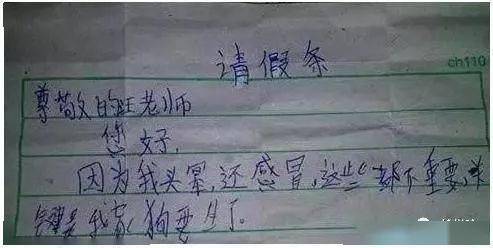 请假条
ch110
尊敬的旺老师
您好,
因为我头晕,还感冒,这些都不重要,关
键是我家狗要生了。